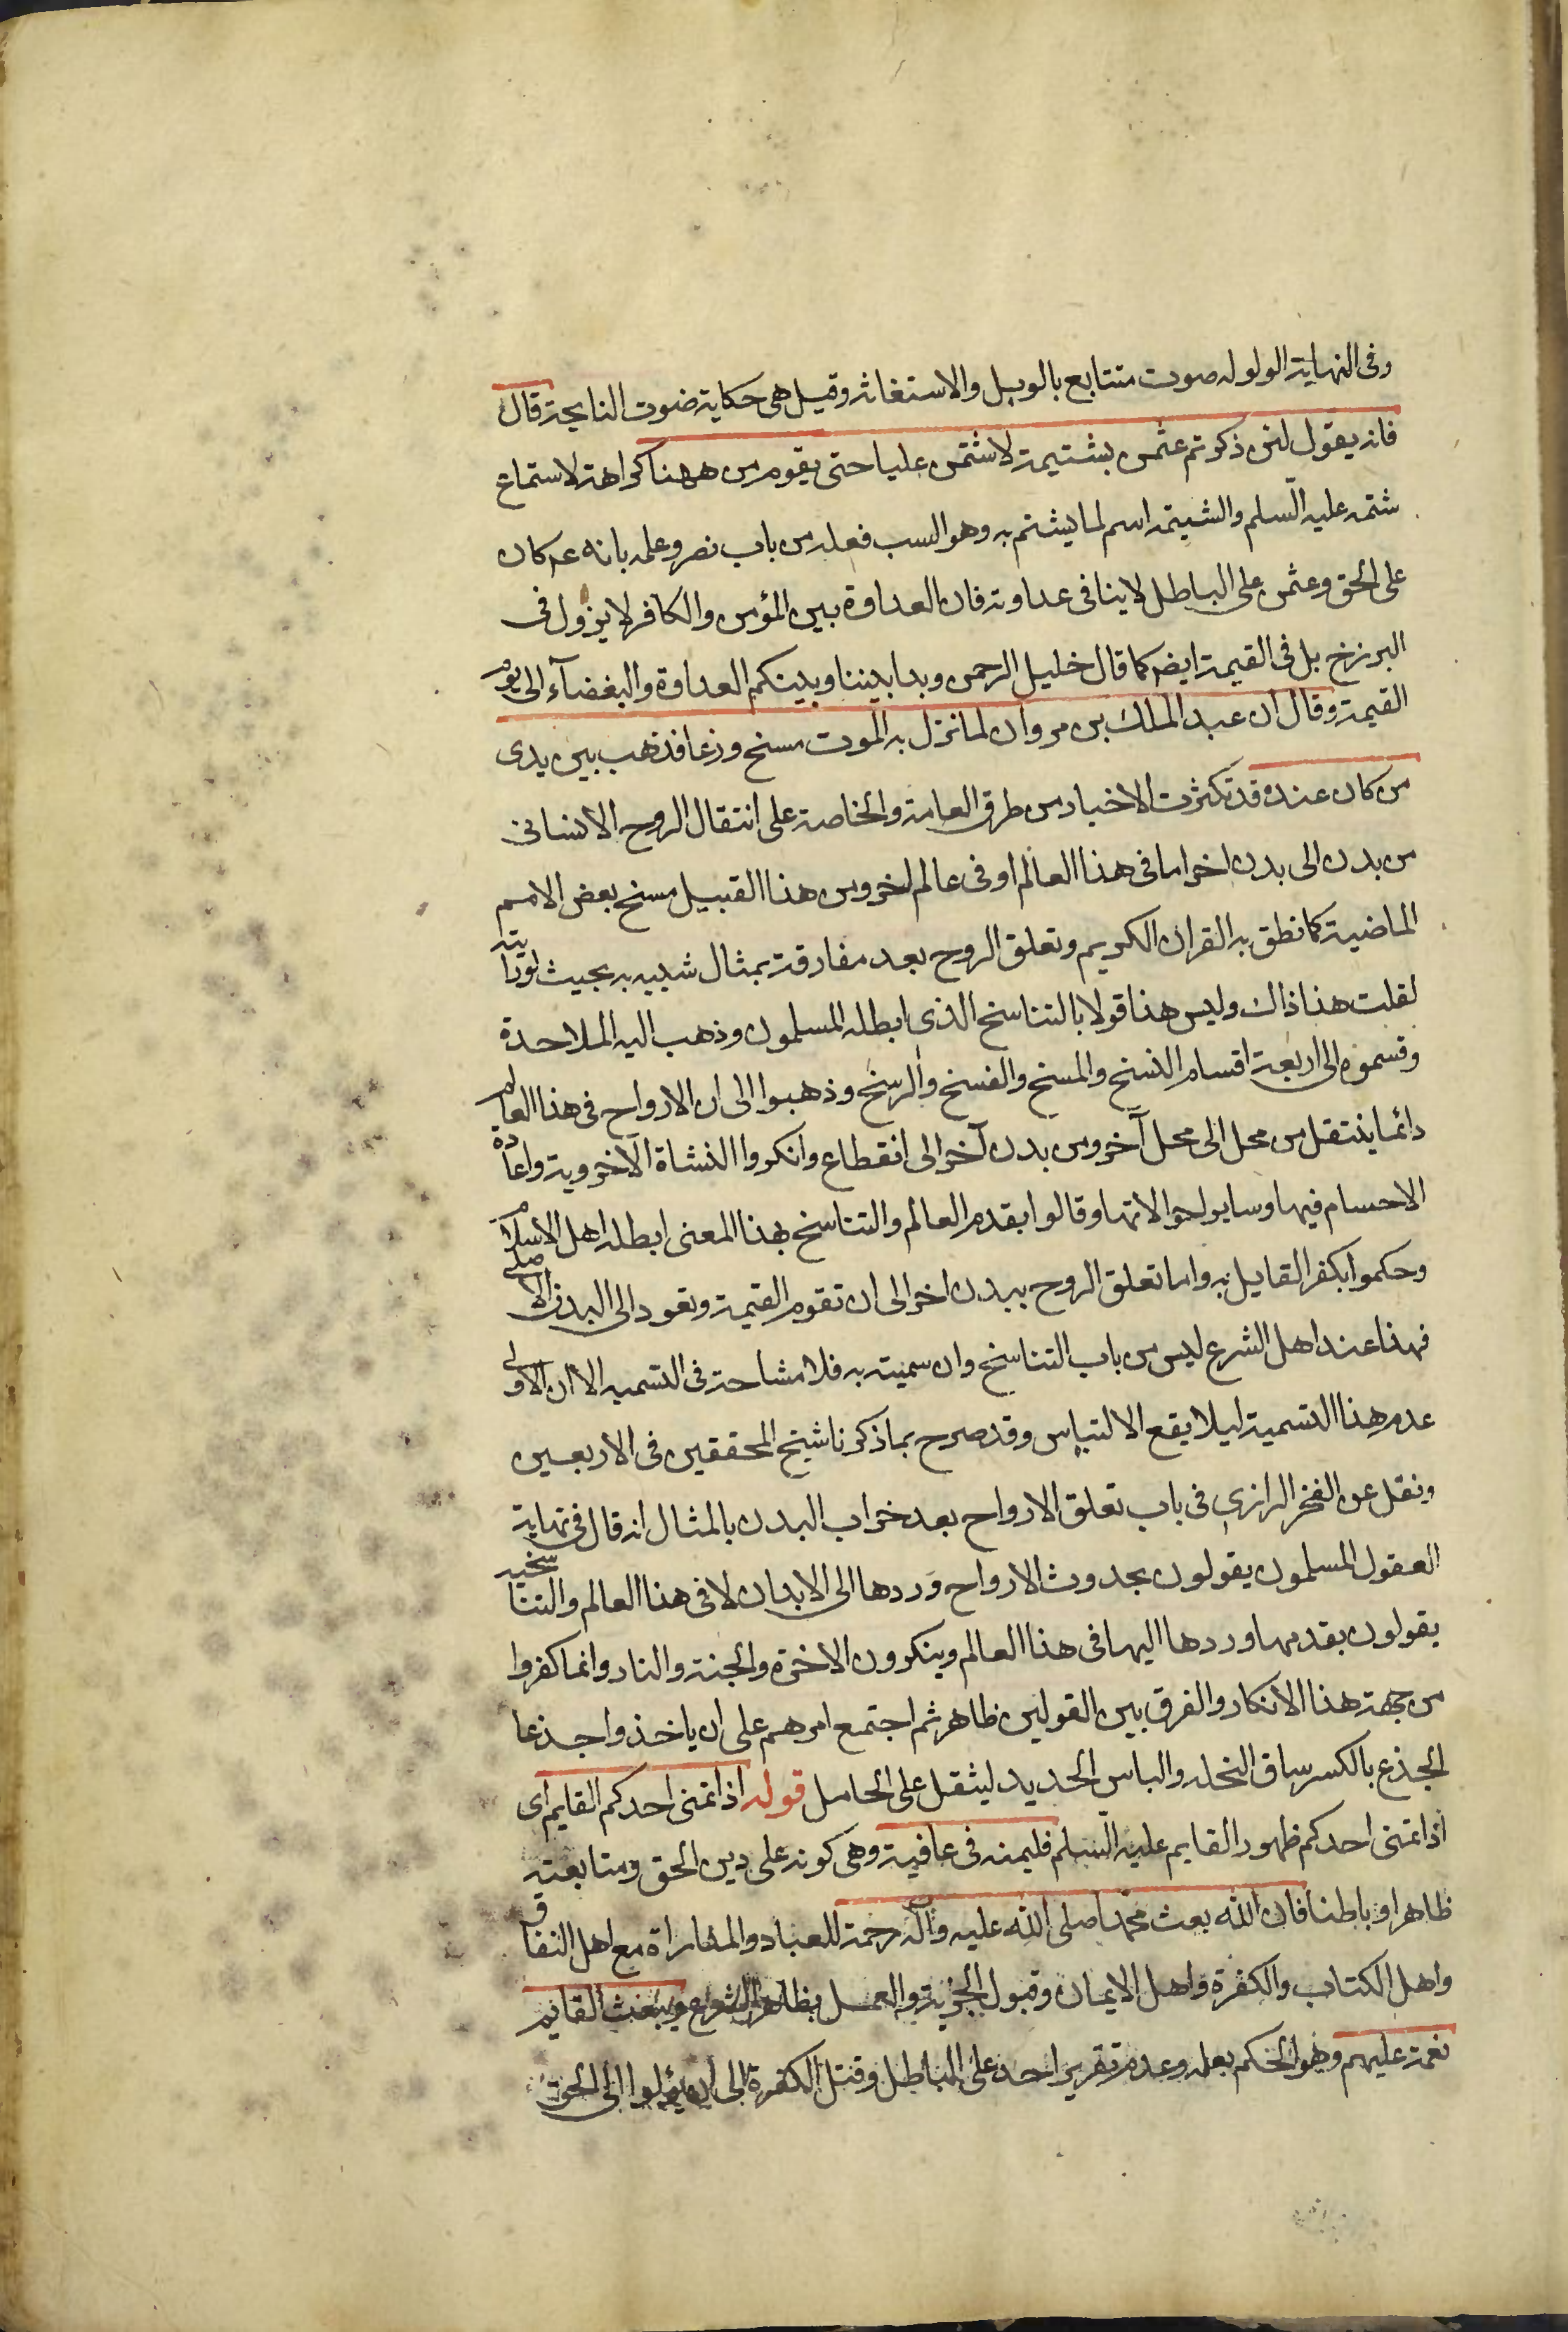 وفى النهاية الولولة صوت متتابع بالويل والاستغاثه وقيل هى حكاية صوت النايحة قال
فانه يقول لئن ذكرتم عثمن بشتيمة لاشتمن عليا حتى يقوم من ههنا كراهة لاستماع
شتمه عليه السلم والشتيمة اسم لما يشتم به وهو السب فعله من باب نصر وعلمه بانه عم كان
على الحق وعثمن على الباطل لا ينافى عداوته فان العداوة بين المؤمن والكافر لا يزول فى
البرزخ بل فى القيمة ايضا كما قال خليل الرحمن وبدا بيننا وبينكم العداوة والبغضآء الى يوم
القيمة وقال ان عبد الملك بن مروان لما نزل به الموت مسخ وزغا فذهب بين يدى
من كان عنده قد تكثرت الاخبار من طرق العامة والخاصة على انتقال الروح الانسانى
من بدن الى بدن اخر اما فى هذا العالم او فى عالم اخر ومن هذا القبيل مسخ بعض الامم
الماضية كما نطق به القران الكريم وتعلق الروح بعد مفارقته بمثال شبيه به بحيث لو رايته
لقلت هذا ذاك وليس هذا قولا بالتناسخ الذى ابطله المسلمون وذهب اليه الملاحدة
وقسموه الى اربعة اقسام النسخ والمسخ والفسخ والرسخ وذهبوا الى ان الارواح فى هذا العالم
دائما ينتقل من محل الى محل آخر ومن بدن آخر الى انقطاع وانكروا النشاة الآخروية واعادة
الاجسام فيها وساير لحوالاتها وقالوا بقدم العالم والتناسخ بهذا المعنى ابطله اهل الاسلام
وحكموا بكفر القايل به واما تعلق الروح ببدن اخر الى ان تقوم القيمة وتعود الى البدن الاصلى
فهذا عند اهل الشرع ليس من باب التناسخ وان سميته به فلا مشاحة فى التسميه الا ان الاولى
عدم هذا التسمية ليلا يقع الالتباس وقد صرح بما ذكرنا شيخ المحققين فى الاربعين
ونقل عن الفخر الرازى فى باب تعلق الارواح بعد خراب البدن بالمثال انه قال فى نهاية
العقول المسلمون يقولون بحدوث الارواح وردها الى الابدان لا فى هذا العالم والتناسخيه
يقولون بقدمها وردها اليها فى هذا العالم وينكرون الاخرة والجنة والنار وانما كفروا
من جهة هذا الانكار والفرق بين القولين ظاهر ثم اجتمع امرهم على ان ياخذوا جذعا
الجذع بالكسر ساق النخله والباس الحديد ليثقل على الحامل قوله اذا تمنى احدكم القايم اى
اذا تمنى احدكم ظهور القايم عليه السلم فليمنه فى عافية وهى كونه على دين الحق ومتابعته
ظاهرا وباطنا فان الله بعث محمدا صلى الله عليه وآله رحمة للعباد والمداراة مع اهل النفاق
واهل الكتاب والكفرة واهل الايمان وقبول الجزية والعمل بظاهر الشرع ويبعث القايم
نقمة عليهم وهو الحكم بعلمه وعدم تقرير احد على الباطل وقتل الكفرة الى ان الى الحق